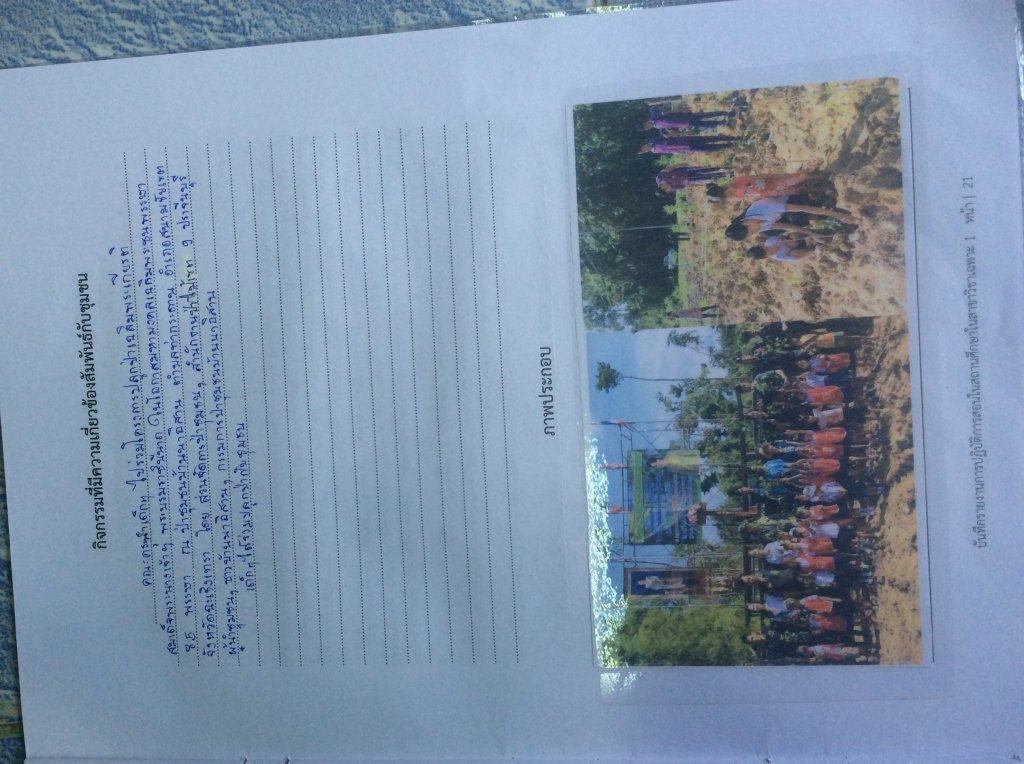 กิจกรรมที่มีความเกี่ยวข้องสัมพันธ์กับชุมชน
คณะครูนำเด็กๆ ไปร่วมโครงการปลูกป่าเฉลิมพระเกียรติ
สมเด็จพระนางเจ้าฯ พระบรมราชินีนาถ ในโอกาสมหามงคลเฉลิมพระชนมพรรษา
พรรษา ณ ป่าชุมชนบ้านนาอิสาน ตำบลท่ากระดาน อำเภอสนามชัยเขต
จังหวัดฉะเชิงเทรา โดย ส่วนจัดการป่าชุมชน, สำนักงานป่าไม้เขต 9 ปราจีนบุรี
ผู้นำชุมชน, ชาวบ้านนาอิสาน, กรรมการป่าชุมชนบ้านนาอิสาน
เด็กๆ ได้ร่วมปลูกป่ากับชุมชน
ภาพประกอบ
บันทึกรายงานการปฏิบัติการสอนในสถานศึกษาในสาขาวิชาเฉพาะ 1 หน้า | 21